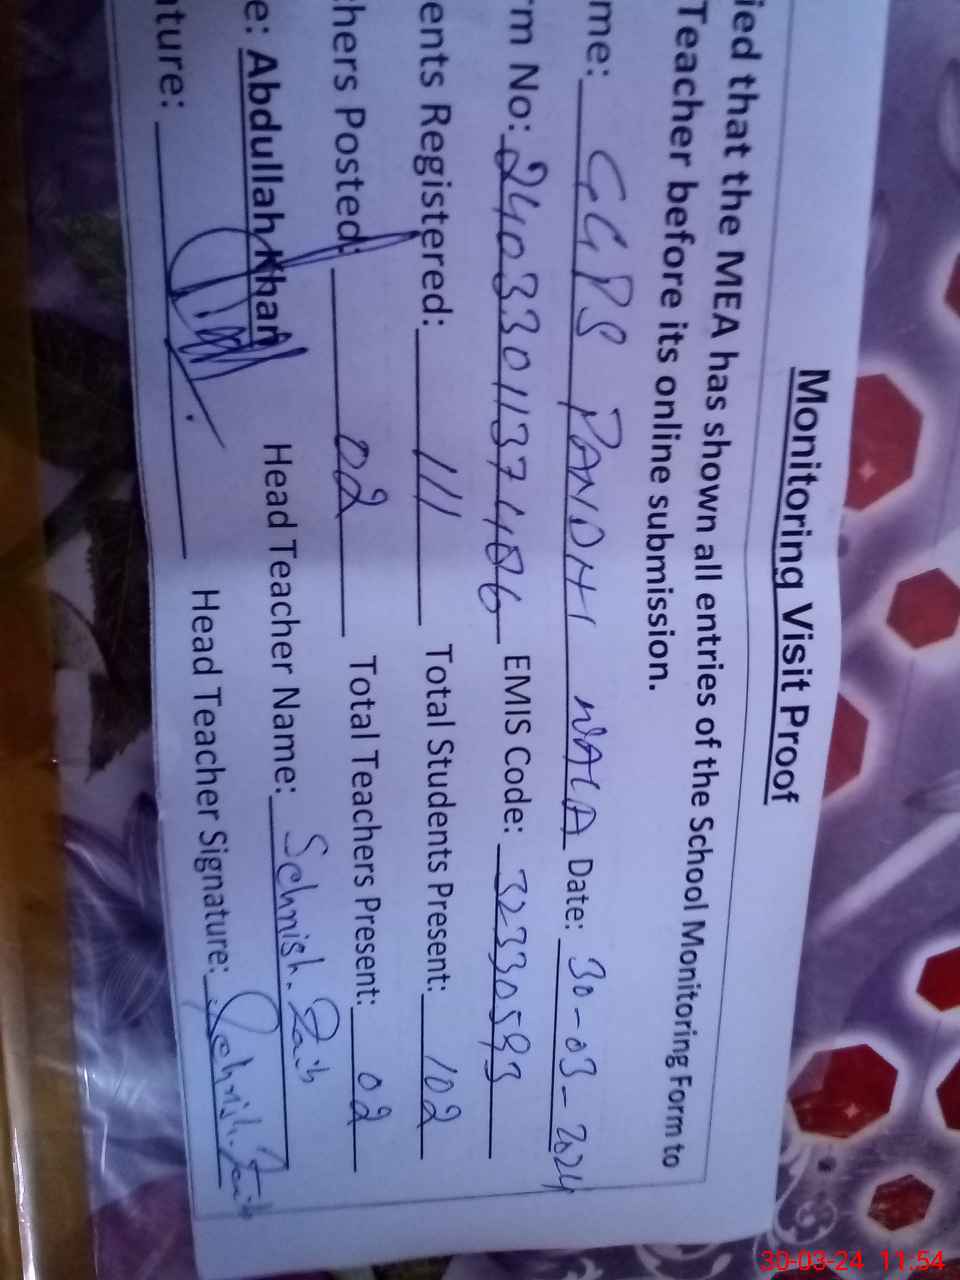 Monitoring Visit Proof
ied that the MEA has shown all entries of the School Monitoring Form to
Teacher before its online submission.
me: GGPS PANDHI WALA Date: 30-03-2024
rm No: EMIS Code: 32330593
ents Registered: 111 Total Students Present: 102
hers Posted: 02 Total Teachers Present: 02
e: Abdullah Khan Head Teacher Name: Sehrish. Zaib
ature: Head Teacher Signature: Sehrish. Zaib
30-03-24 11:54